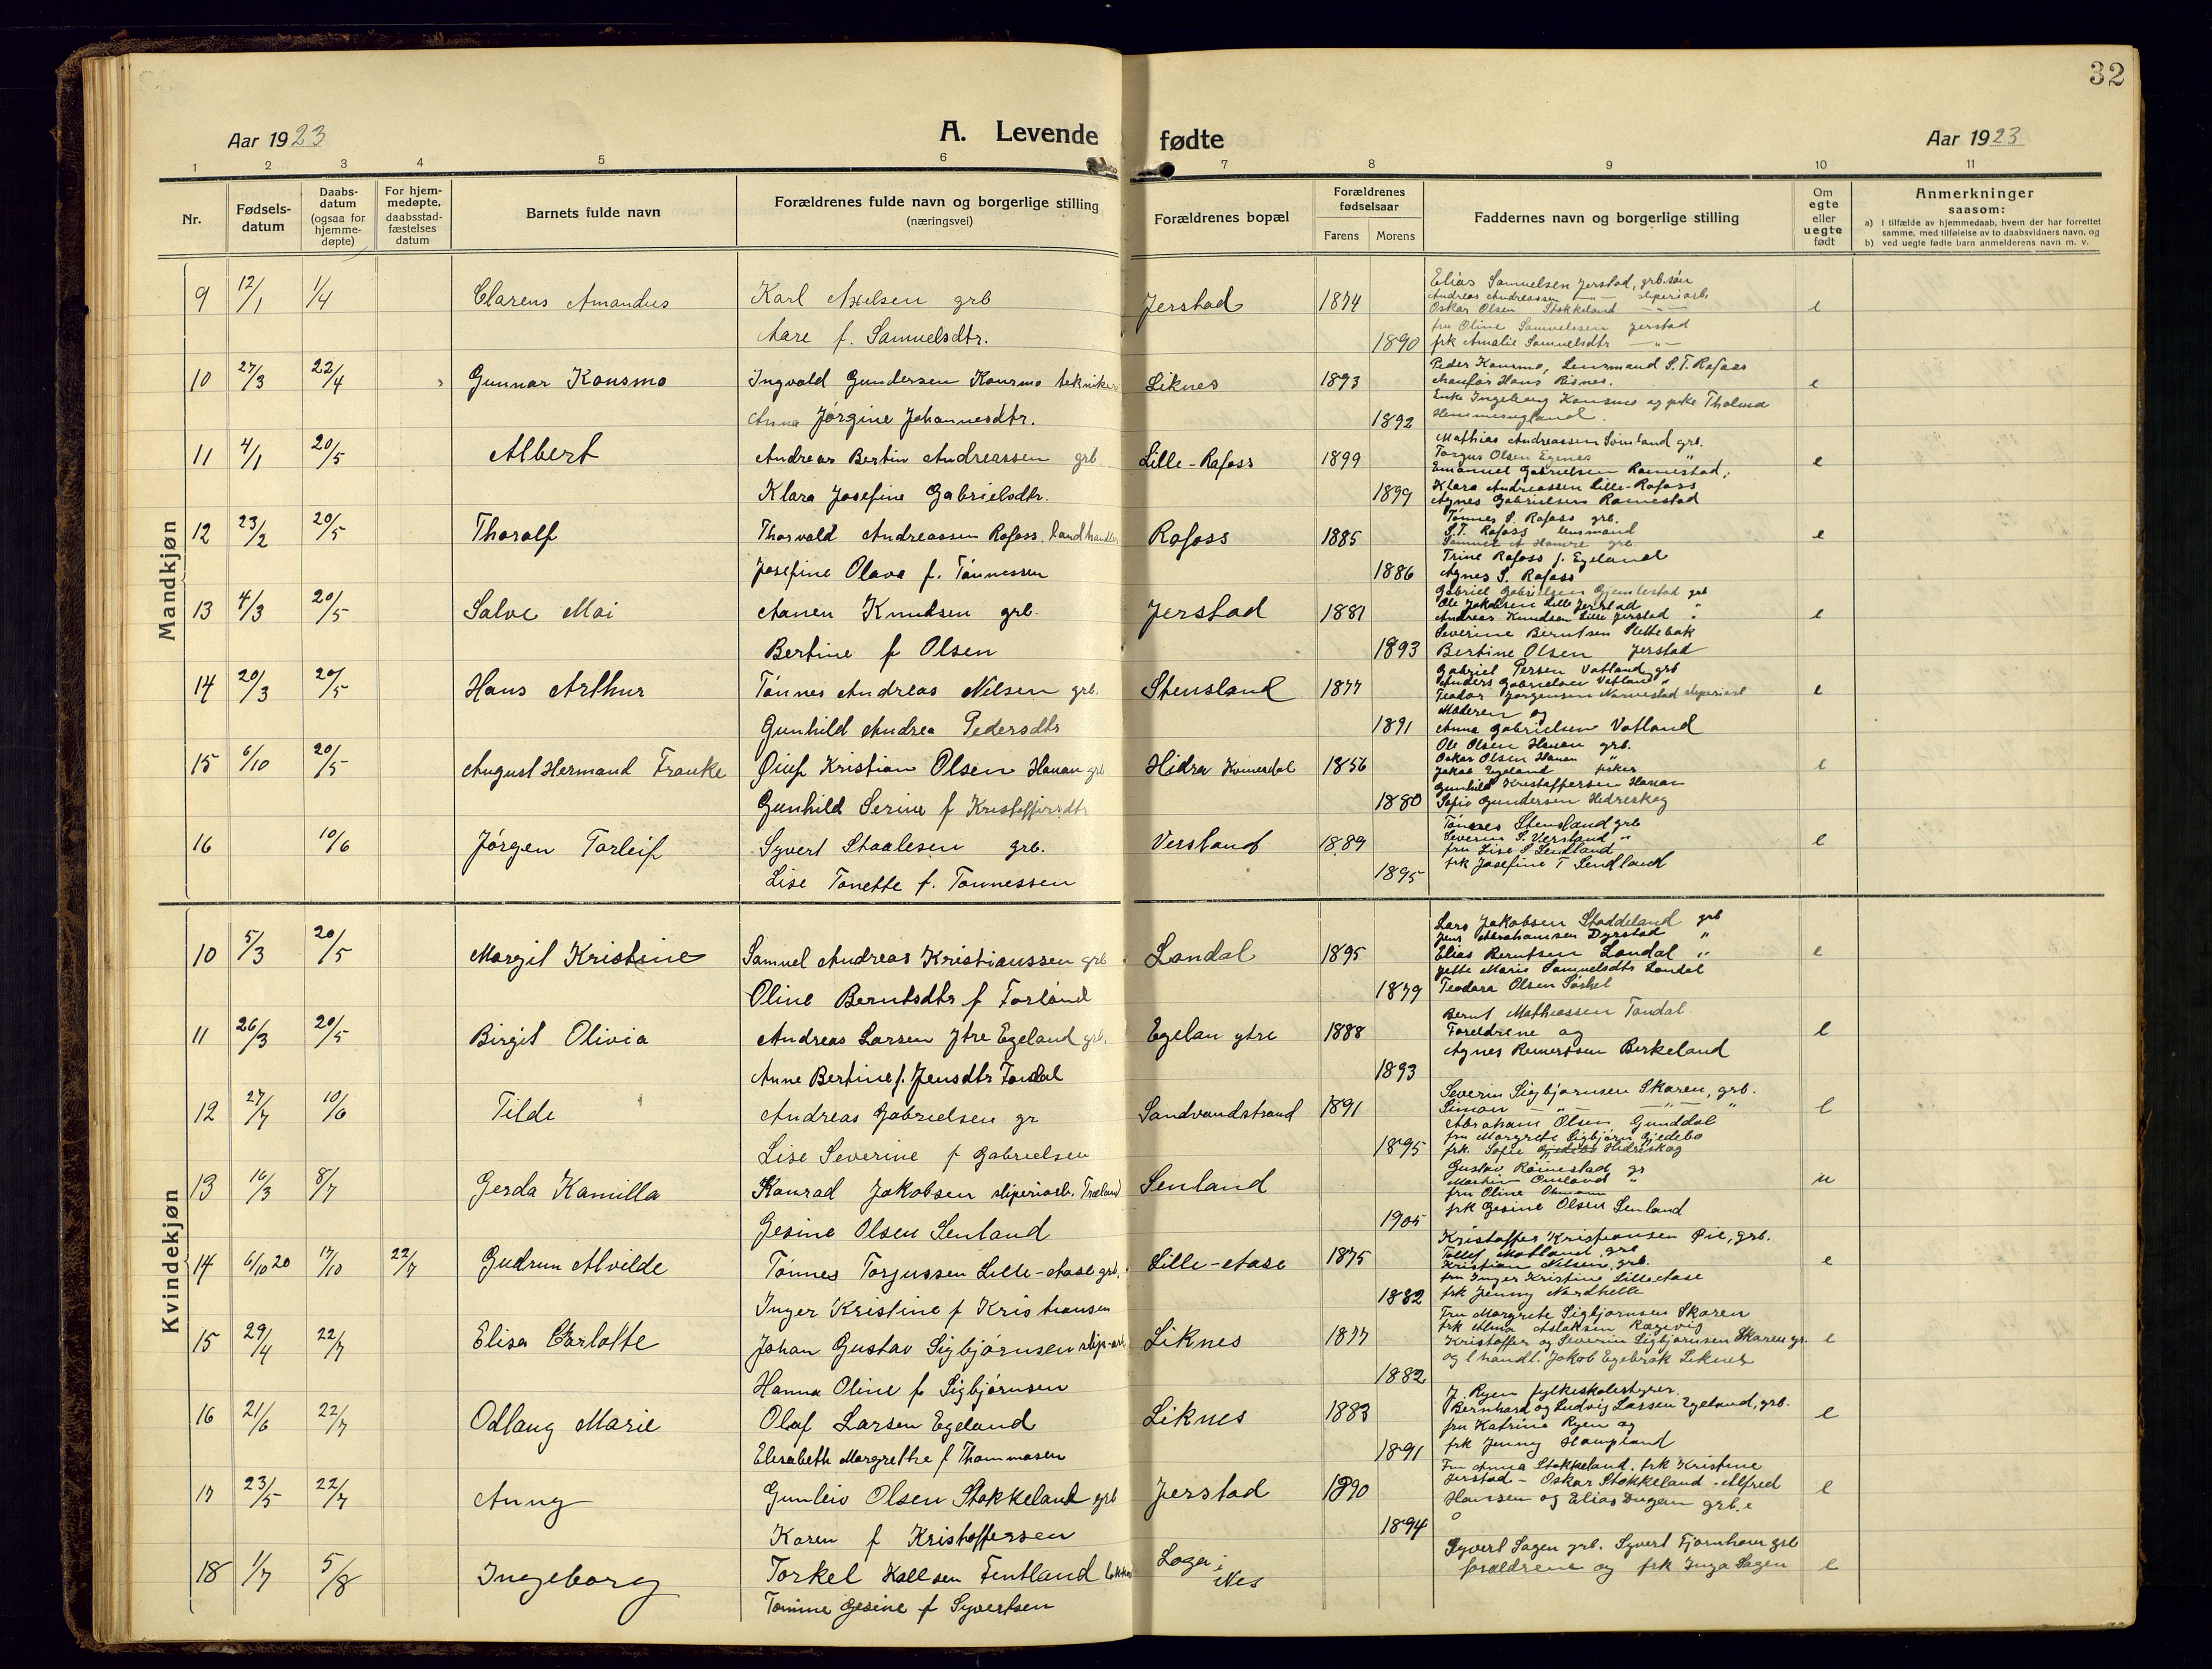 32
Aar 1923
A. Levende fødte
Aar 1923
1 2 3 4 5 6 7 8 9 10 11
Nr.
Fødsels-
datum
Daabs-
datum
(ogsaa for
hjemme-
døpte)
For hjem-
medøpte,
daabsstad-
fæstelses
datum
Barnets fulde navn
Forældrenes fulde navn og borgerlige stilling
(næringsvei)
Forældrenes bopæl
Forældrenes
fødselsaar
Farens Morens
Faddernes navn og borgerlige stilling
Om
egte
eller
uegte
født
Anmerkninger
saasom:
a) i tilfælde av hjemmedaab, hvem der har forrettet
samme, med tilføielse av to daabsvidners navn, og
b) ved uegte fødte barn anmelderens navn m. v.
Mandkjøn
9 12/1 1/4 Clarens Amandus Karl Axelsen grb Jerstad 1874 e
Aare f. Samuelsdtr. 1890
Elias Samuelsen Jerstad, grb.søn
Andreas Andreassen — " — sliperiarb.
Oskar Olsen Stokkeland — " —
fru Oline Samuelssen Jerstad
frk Amalie Samuelsdtr — " —
10 27/3 22/4 Gunnar Konsmo Ingvald Gundersen Konsmo tekniker Liknes 1893 e
Anna Jørgine Johannesdtr. 1892
Peder Konsmo, Lensmand S.T. Rafoss
Hans Risnes.
Enke Ingeborg Konsmo og frk Tholma
11 4/1 20/5 Albert Andreas Bertin Andreassen grb Lille-Rafoss 1899 e
Klara Josefine Gabrielsdtr. 1899
Mathias Andreassen Svindland grb.
Torgus Olsen Egenes "
Emanuel Gabrielsen Ramestad,
Klara Andreassen Lille-Rafoss
Agnes Gabrielsen Ramestad
12 23/2 20/5 Thoralf Thorvald Andreassen Rafoss landhandler Rafoss 1885 e
Josefine Olava f. Tønnessen 1886
Tønnes S. Rafoss grb.
S.T. Rafoss lensmand
Samuel A Hamre grb
Trine Rafoss f. Egeland
Agnes S. Rafoss
13 4/3 20/5 Salve Mai Aanen Knudsen grb. Jerstad 1881 e
Bertine f Olsen 1893
Gabriel Gabrielsen Gjemlestad grb
Ole Jakobsen Lille Jerstad "
Andreas Knudsen Lille Jerstad "
Severine Berntsen Slettebak
Bertine Olsen Jerstad
14 20/3 20/5 Hans Arthur Tønnes Andreas Nilsen grb. Stensland 1877 e
Gunhild Andrea Pedersdtr 1891
Gabriel Persen Vatland grb
Anders Gabrielsen Vatland "
Teodor Jørgensen Narvestad sliperiarb
Moderen og
Anna Gabrielsen Vatland
15 6/10 20/5 August Hermand Franke Øiuf Kristian Olsen Hanan grb Hidra Kvinesdal 1856 e
Gunhild Serine f Kristoffersdtr 1880
Ole Olsen Hanan grb.
Oskar Olsen Hanan "
Jakob Egeland fisker
Gunhild Kristoffersen Hanan
Sofie Gundersen Hidreskog
16 10/6 Jørgen Torleif Syvert Staalesen grb. Versland 1889 e
Lise Tonette f. Tønnessen 1895
Tønnes Stensland grb
Severin S. Versland "
fru Lise S Sendland
frk Josefine T Sendland
Kvindekjøn
10 5/3 20/5 Margit Kristine Samuel Andreas Kristianssen grb Landal 1895 e
Oline Berntsdtr f Forland 1879
Lars Jakobsen Stoddeland grb
Jens Abrahamsen Dyrstad "
Elias Berntsen Landal "
Jette Marie Samuelsdtr Landal
Teodora Olsen
11 26/3 20/5 Birgit Olivia Andreas Larsen Ytre Egeland grb. Egelan ytre 1888 e
Anne Bertine f. Jensdtr 1893
Bernt Mathiassen Tandal
Foreldrene og
Agnes Reinertsen Birkeland
12 27/7 10/6 Tilde Andreas Gabrielsen gr Sandvandstrand 1891 e
Lise Severine f Gabrielsen 1895
Severin Sigbjørnsen Skaren, grb.
Simon — " — — " — "
Abraham Olsen Gunddal
fru Margrete Sigbjørn Gjedebo
frk. Sofie Hidreskog
13 16/3 8/7 Gerda Kamilla Konrad Jakobsen sliperiarb. Træland Senland u
Gesine Olsen Senland 1905
Gustav Røinestad gr
Martin Omland "
fru Oline
frk Gesine Olsen Senland
14 6/10 20 17/10 22/7 Gudrun Alvilde Tønnes Torgussen Lille-Aase grb. Lille-Aase 1875 e
Inger Kristine f Kristiansen 1882
Kristoffer Kristiansen Øie, grb.
Tollef Moland grb
Kristian Nilsen, grb.
fru Inger Kristine Lille Aase
frk Jenny Nordhelle
15 29/4 22/7 Elisa Charlotte Johan Gustav Sigbjørnsen slip-arb. Liknes 1877 e
Hanna Oline f Sigbjørnsen 1882
Fru Margrete Sigbjørnsen Skaren
frk Alma Aslaksen Rægevig
Kristoffer og Severin Sigbjørnsen Skaren gr.
og l handl. Jakob Egebrok Liknes
16 21/6 22/7 Odlaug Marie Olaf Larsen Egeland Liknes 1883 e
Elisabeth Margrethe f Thommasen 1891
J. Ryen fylkeskolestyrer.
Bernhard og Ludvig Larsen Egeland, grb.
fru Katrine Ryen og
frk Jenny Haugland
17 23/5 22/7 Anny Gunleiv Olsen Stokkeland grb Jerstad 1890 e
Karen f Kristoffersen 1894
Fru Anna Stokkeland. frk Kristine
Jerstad - Oskar Stokkeland. Alfred
Hanssen og Elias Dugan grb.e
18 1/7 5/8 Ingeborg Torkel Kallsen Fentland Loga i Nes e
Tomine Gesine f Syvertsen
Syvert Sagen grb. Syvert Fjørnham grb
forældrene og frk Inga Sagen